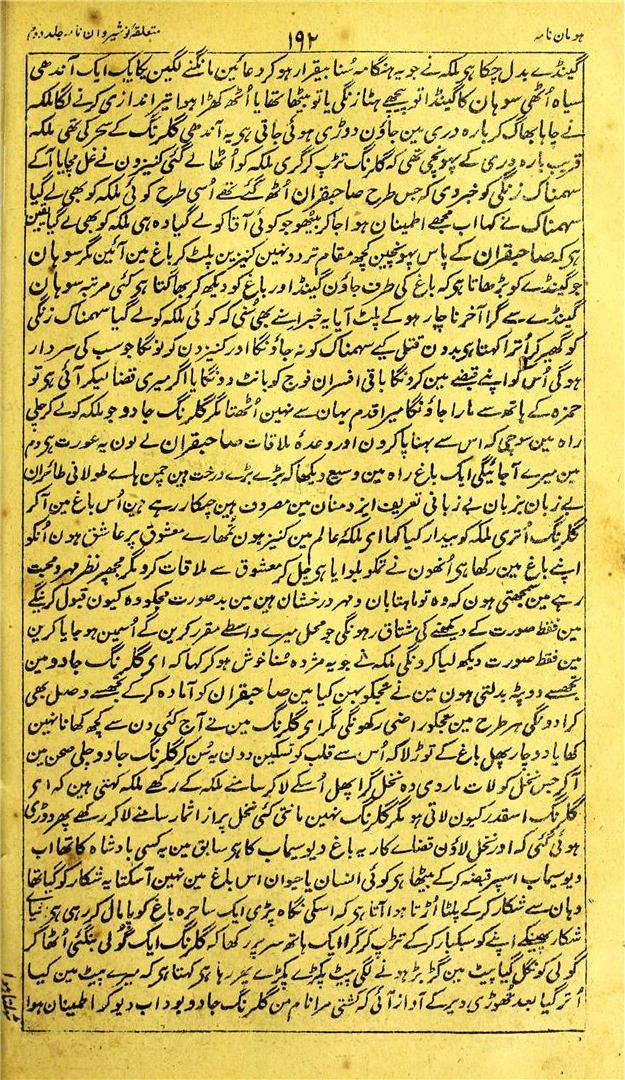 ہومان نامہ
۱۹۲
متعلقۂ نوشیروان نامہ جلد دوم
گینڈے بدل چکا ہی ملکہ نے جو یہ ہنگامہ سُنا بیقرار ہو کر دعائین مانگنے لگین یکایک ایک آندھی
سیاہ اُٹھی سوہان کا گینڈا تو پیچھے ہٹا زنگی یا تو بیٹھا تھا یا اُٹھ کھڑا ہوا تیر اندازی کرنے لگا ملکہ
نے چاہا بھاگ کر بارہ دری مین جاؤن دوڑی ہوئی جاتی ہی یہ آندھی گلرنگ کے سحر کی تھی ملکہ
قریب بارہ دری کے پہونچی تھی کہ گلرنگ تڑپ کر گری ملکہ کو اُٹھا لے گئی کنیزون نے غل مچایا آ کے
سہمناک زنگی کو خبر دی کہ جس طرح صاحبقران اُٹھ گئے تھے اُسی طرح کوئی ملکہ کو بھی لے گیا
سہمناک نے کہا اب مجھے اطمینان ہوا جا کر بیٹھو جو کوئی آقا کو لے گیا وہ ہی ملکہ کو بھی لے گیا یقین
ہی کہ صاحبقران کے پاس پہونچین کچھ مقام تردد نہین کنیزین پلٹ کر باغ مین آئین مگر سوہان
جو گینڈے کو بڑھاتا ہو کہ باغ کی طرف جاؤن گینڈا اور باغ کو دیکھ کر بھاگتا ہی کئی مرتبہ سوہان
گینڈے سے گرا آخر ناچار ہو کے پلٹ آیا یہ خبر اسنے بھی سُنی کہ کوئی ملکہ کو لے گیا سہمناک زنگی
کو گھیر کر اُترا کہتا ہی بدون قتل کیے سہمناک کو نہ جاؤنگا اور کنیزون کو لونگا جو سب کی سردار
ہو گی اُس کو اپنے قبضے مین کرونگا باقی افسران فوج کو بانٹ دونگا یا اگر میری قضا لیکر آئی ہو تو
حمزہ کے ہاتھ سے مارا جاؤنگا میرا قدم یہان سے نہین اُٹھتا مگر گلرنگ جادو جو ملکہ کو لے کر چلی
راہ مین سوچی کہ اس سے بہناپا کرون اور وعدۂ ملاقات صاحبقران لے لون یہ عورت ہی دم
مین میرے آجائیگی ایک باغ راہ مین وسیع دیکھا کہ بڑے بڑے درخت ہین چمن ہاے طولانی طائران
بے زبان بزبان بے زبانی تعریف ایزد منان مین مصروف ہین چہکار رہے ہین اُس باغ مین آ کر
گلرنگ اُتری ملکہ کو بیدار کیا کہا ای ملکۂ عالم مین کنیز ہون تمھارے معشوق پر عاشق ہون اُنکو
اپنے باغ مین رکھا ہی اُنھون نے تمکو بلوایا ہی چل کر معشوق سے ملاقات کرو مگر مجھپر نظر مہر و محبت
رہے مین سمجھتی ہون کہ وہ تو ماہتابان و مہر درخشان ہین مین بد صورت مجکو وہ کیون قبول کرینگے
مین فقط صورت کے دیکھنے کی مشتاق رہونگی جو محل میرے واسطے مقرر کرین گے اُسمین ہو جایا کرین
مین فقط صورت دیکھ لیا کرونگی ملکہ نے جو یہ مژدہ سُنا خوش ہو کر کہا کہ ای گلرنگ جادو مین
تجھسے دوپٹہ بدلتی ہون مین نے تجھکو بہن کیا مین صاحبقران کو آمادہ کر کے تجھسے وصل بھی
کرا دونگی ہر طرح مین مجکو راضی رکھونگی مگر ای گلرنگ مین نے آج کئی دن سے کچھ کھانا نہین
کھایا دو چار پھل باغ کے توڑ لا کہ اُس سے قلب کو تسکین دون یہ سُن کر گلرنگ جادو چلی صحن مین
آ کر جس نخل کو لات مار دی وہ نخل گرا پھل اُسکے لا کر سامنے ملکہ کے رکھے ملکہ کہتی ہین کہ ای
گلرنگ اسقدر کیون لاتی ہو مگر گلرنگ نہین مانتی کئی نخل پر از اثمار سامنے لا کر رکھے پھر دوڑی
ہوئی گئی کہ اور نخل لاؤن قضاے کار یہ باغ دیو سیماب کا ہی سابق مین یہ کسی بادشاہ کا تھا اب
دیو سیماب اسپر قبضہ کر کے بیٹھا ہی کوئی انسان یا حیوان اس باغ مین نہین آسکتا یہ شکار کو گیا تھا
وہان سے شکار کر کے پلٹا اُڑتا ہوا آتا ہی کہ اسکی نگاہ پڑی ایک ساحرہ باغ کو پامال کر رہی ہی
شکار پھینکے اپنے کو سبکبار کر کے تڑپ کر گرا ایک ہاتھ سر پر رکھا کہ گلرنگ ایک گولی بنگئی اُٹھا کر
گولی کو نگل گیا پیٹ مین گڑ بڑ ہونے لگی پیٹ پکڑے پکڑے پھر رہا ہو کہتا ہو کہ میرے پیٹ مین کیا
اُتر گیا بعد تھوڑی دیر کے آواز آئی کہ کشتی مرا نام من گلرنگ جادو بود اب دیو کو اطمینان ہوا